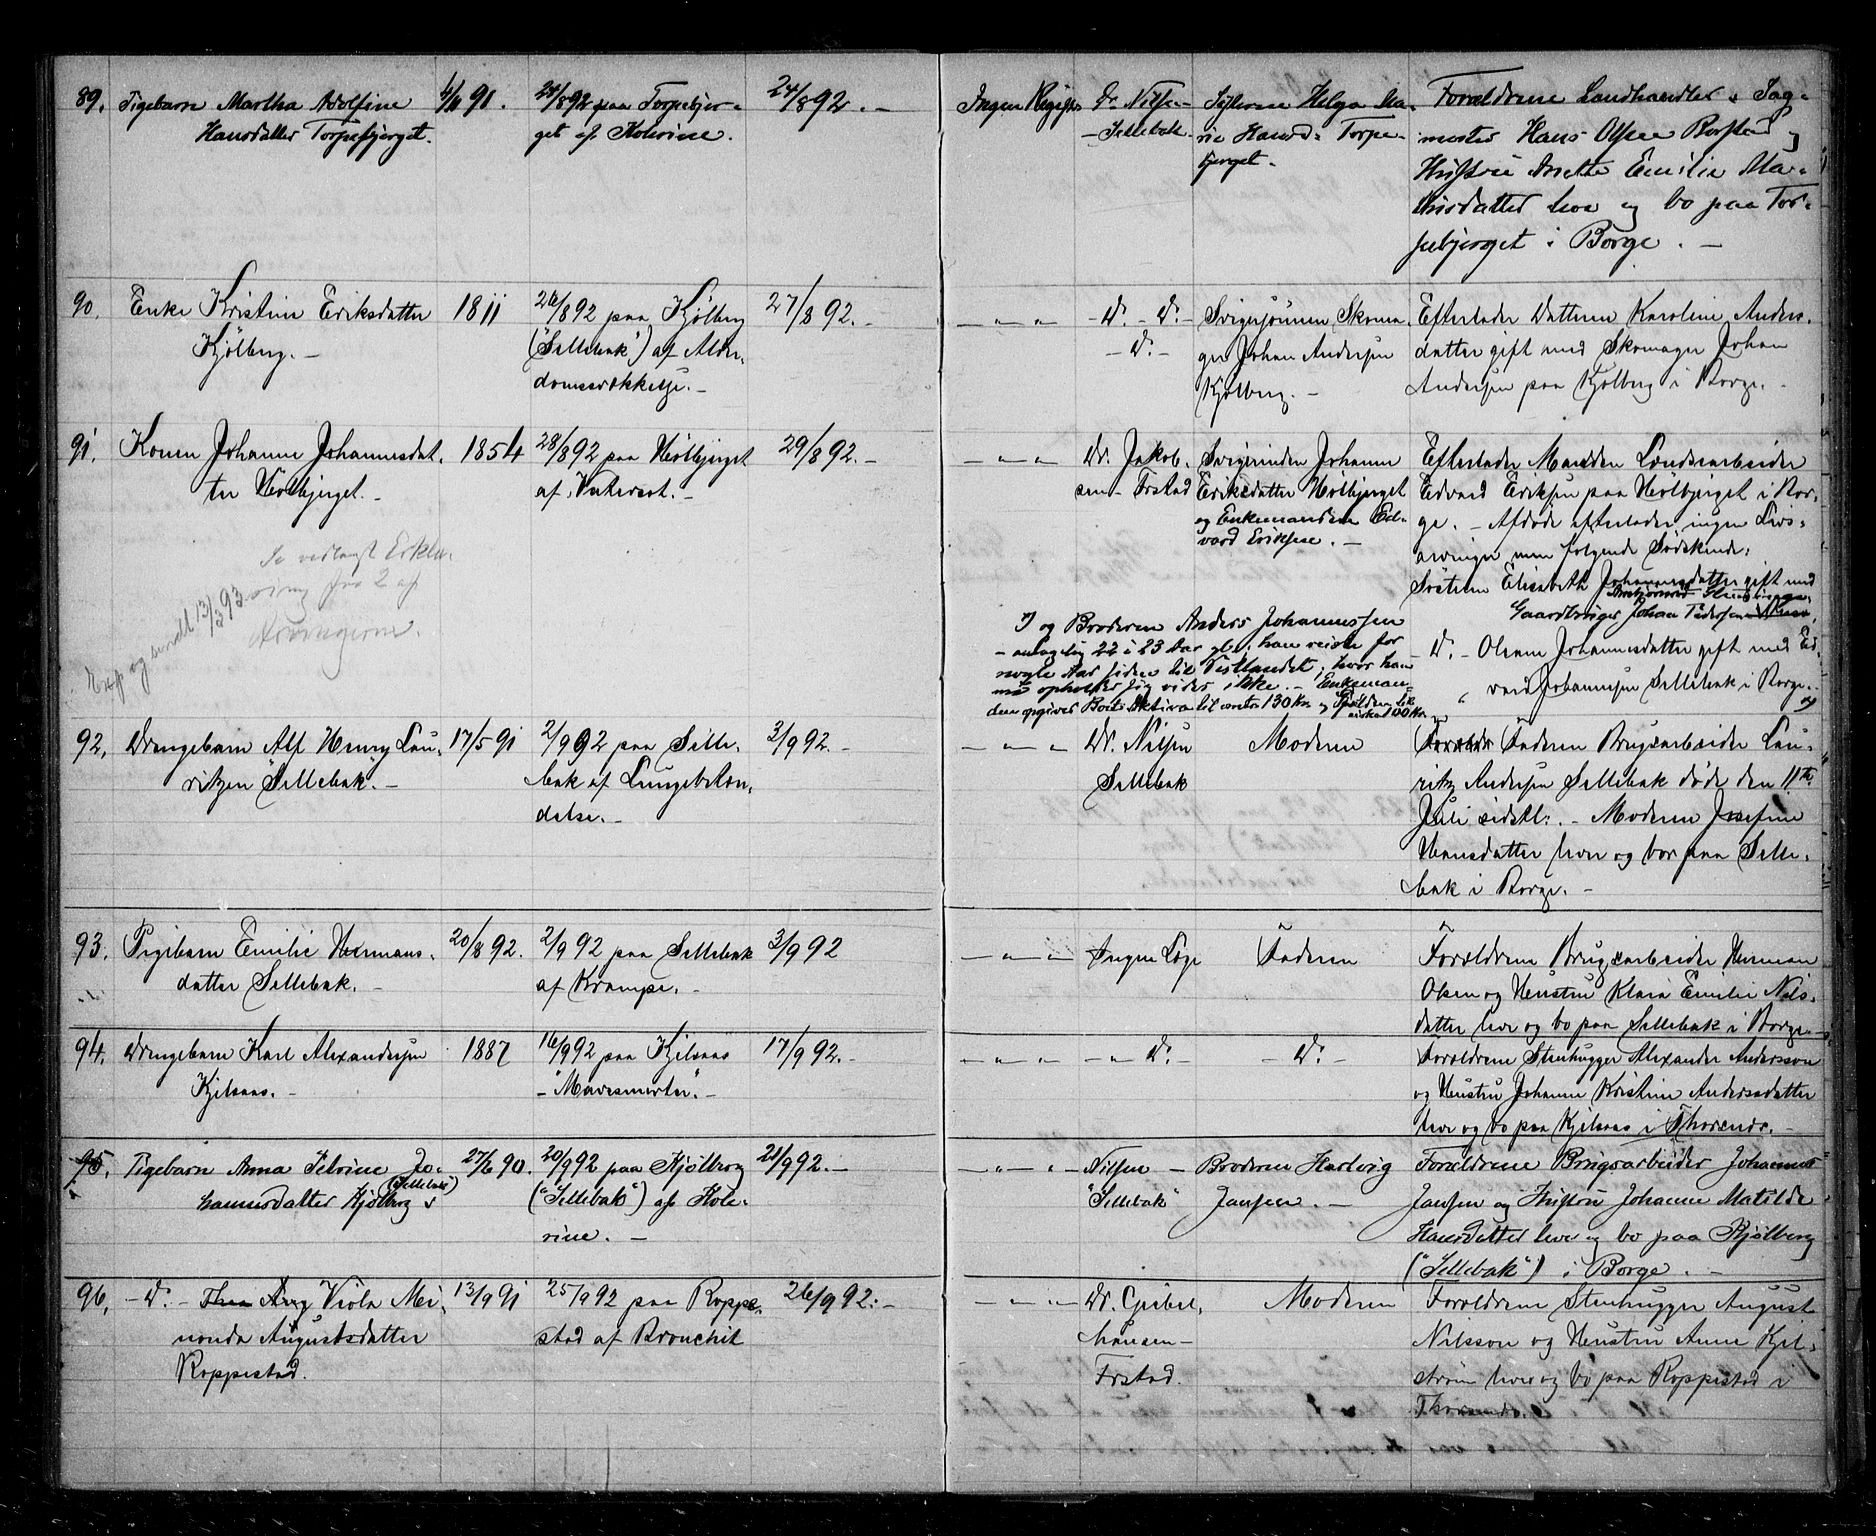 89. Pigebarn Martha Adolfine
Hansdatter Torpebjerget.
91.
24/892 paa Torpebjer-
get af Kolerine.
24/892. -
Ingen
Dr. Nilsen -
- Sellebak.
Søsteren Helga Ma-
rie Hansd: Torpe-
bjerget.
Forældrene Landhandler & Sag-
mester Hans Olsen Borstad og
Hustru Anette Emilie Ma-
thisdatter leve og bo paa Tor-
pebjerget i Borge. -
90. Enke Kristine Eriksdatter
Kjølberg. -
1811
26/892 paa Kjølberg
("Sellebak") af Alder-
domssvækkelse. -
27/892. -
- " - " -
- Dr. - Do. -
- Do. -
Svigersønnen Skoma-
ger Johan Andersen
Kjølberg. -
Efterlader Datteren Karoline Anders-
datter gift med Skomager Johan
Andersen paa Kjølberg i Borge. -
91. Konen Johanne Johannesdat-
ter Hvolbjerget. -
1854
28/892 paa Hvolbjerget
af Vatersot. -
29/892. -
- " - " -
Dr. Jakob-
sen - Frstad
Svigerinden Johanne
Eriksdatter Hvolbjerget
og Enkemanden Ed-
vard Eriksen. -
Efterlader Manden Landsarbeider
Edvard Eriksen paa Hvolbjerget i Bor-
ge. - Afdøde efterlader ingen Livs-
arvinger men følgende Sødskende:
Søsteren Elisabeth Johannesdatter gift med
Gaardbruger Johan Pedersen
- Do. - Oleane Johannesdatter gift med Ed-
" vard Johannesen Sellebak i Borge.
Se vedlagt Erklæ-
ring fra 2 af
Arvingerne.
Exp og sendt 13/3 93
og Broderen Anders Johannessen
- antagelig 22 i 23 Aar gl., han reiste for
nogle Aar siden til Vestlandet, hvor han
nu opholder sig vides ikke. - Enkeman-
den opgiver Boets Aktiva til omtr 130 Kr. og Gjælden til
100 Kr.
92. Drengebarn Alf Henry Lau-
ritzen "Sellebak". -
17/5 91
2/992 paa Selle-
bak af Lungebetæn-
delse. -
3/992. -
- " - " -
Dr. Nilsen
Sellebak
Moderen
Faderen Brugsarbeider Lau-
ritz Andersen Sellebak døde den 11te
Juli sidstl:. - Moderen Josefine
Hansdatter lever og bor paa Selle-
bak i Borge. -
93. Pigebarn Emilie Hermans-
datter Sellebak. -
20/8 92.
2/992 paa Sellebak
af Krampe. -
3/992
- " - " -
Ingen Læge
Faderen
Forældrene Brugsarbeider Herman
Olsen og Hustru Klara Emilie Nils-
datter leve og bo paa Sellebak i Borge. -
94. Drengebarn Karl Alexandersen
Kjilsaas. -
1887
16/992 paa Kjilsaas
- "Mavesmerter". -
17/992. -
- " - " -
- " Do. -
- Do. -
Forældrene Stenhugger Alexander Andersson
og Hustru Johanne Kristine Andersdatter
leve og bo paa Kjilsaas i Thorsnæs. -
95. Pigebarn Anna Petrine Jo-
hannesdatter Kjølberg (Sellebak)
27/6 90.
20/992 paa Kjølberg
("Sellebak") af Kole-
rine. -
21/992. -
- " - " -
Nilsen -
"Sellebak"
Broderen Hartvig
Jansen. -
Forældrene Brugsarbeider Johannes
Jansen og Hustru Johanne Matilde
Hansdatter leve og bo paa Kjølberg
("Sellebak") i Borge. -
96. - Do. - Viola Mi-
nonda Augustsdatter
Roppestad.
13/9 91
25/992 paa Roppe-
stad af Bronchit
26/992. -
- " - " -
Dr. Giebel-
hausen -
Frstad.
Moderen
Forældrene Stenhugger August
Nilsson og Hustru Anna Kjel-
strøm leve og bo paa Roppestad i
Thorsnæs.